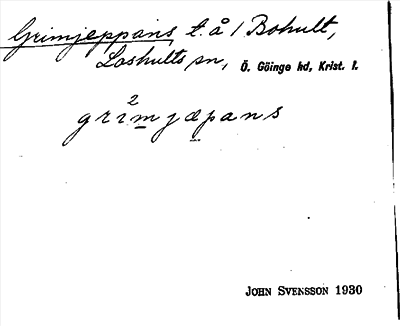 Grimjeppans t. å / Bohult,
Loshults sn, Ö. Göinge hd, Krist. l.
gri²mjæpans
JOHN SVENSSON 1930